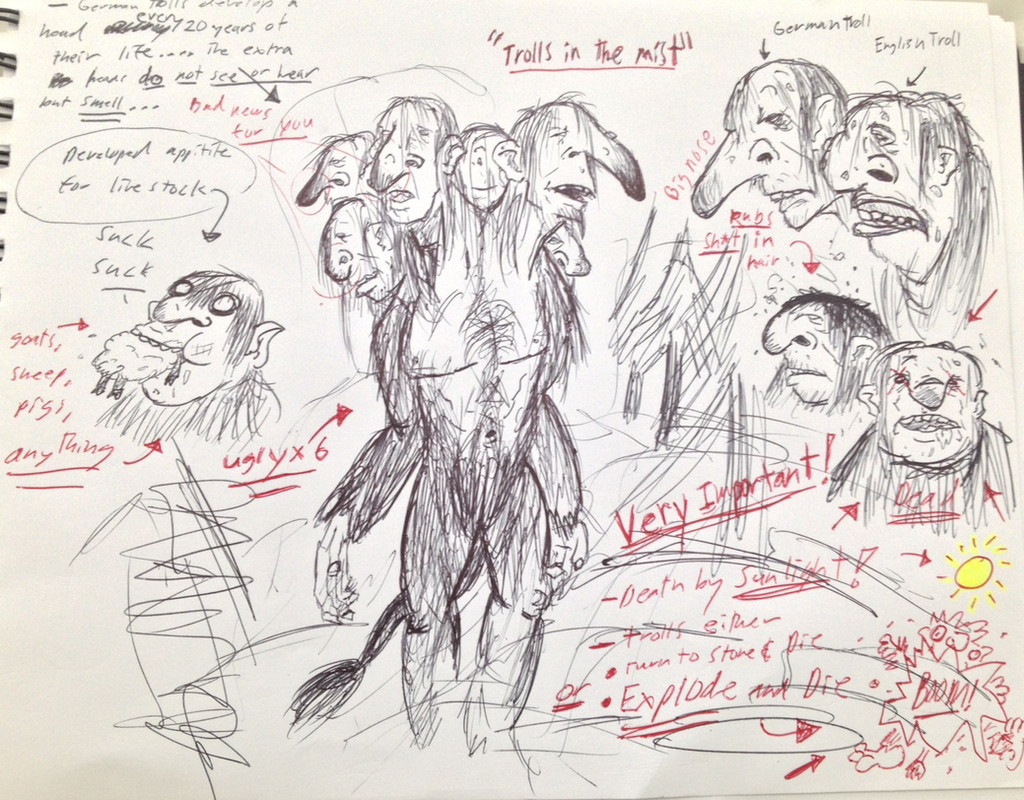 - German trolls develop a
head every 20 years of
their life.... The extra
heads do not see or hear
but smell...
Bad news
for you
Developed appitite
for livestock
suck
suck
goats,
sheep,
pigs,
anything
uglyx6
"Trolls in the mist"
German Troll
English Troll
Big nose
Rubs
sh*t in
hair
Dead
Very Important!
- Death by Sunlight!
- trolls either
• turn to stone & Die
or • Explode and Die
BOOM!